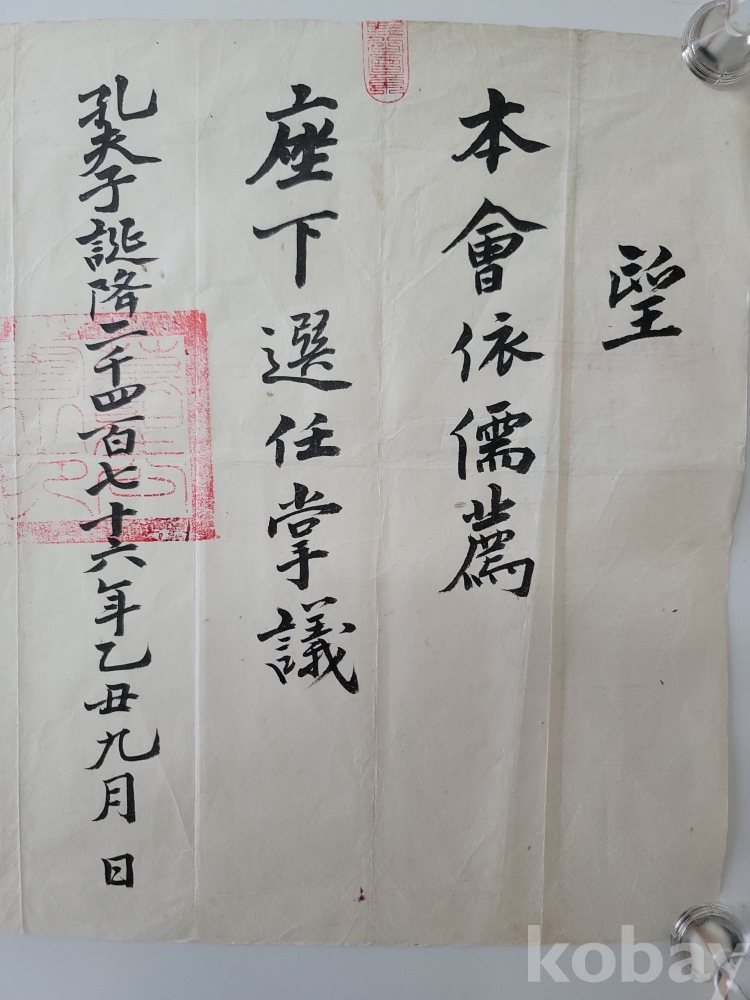 望
本會依儒薦
座下選任掌議
孔夫子誕降二千四百七十六年乙丑九月 日
kobay